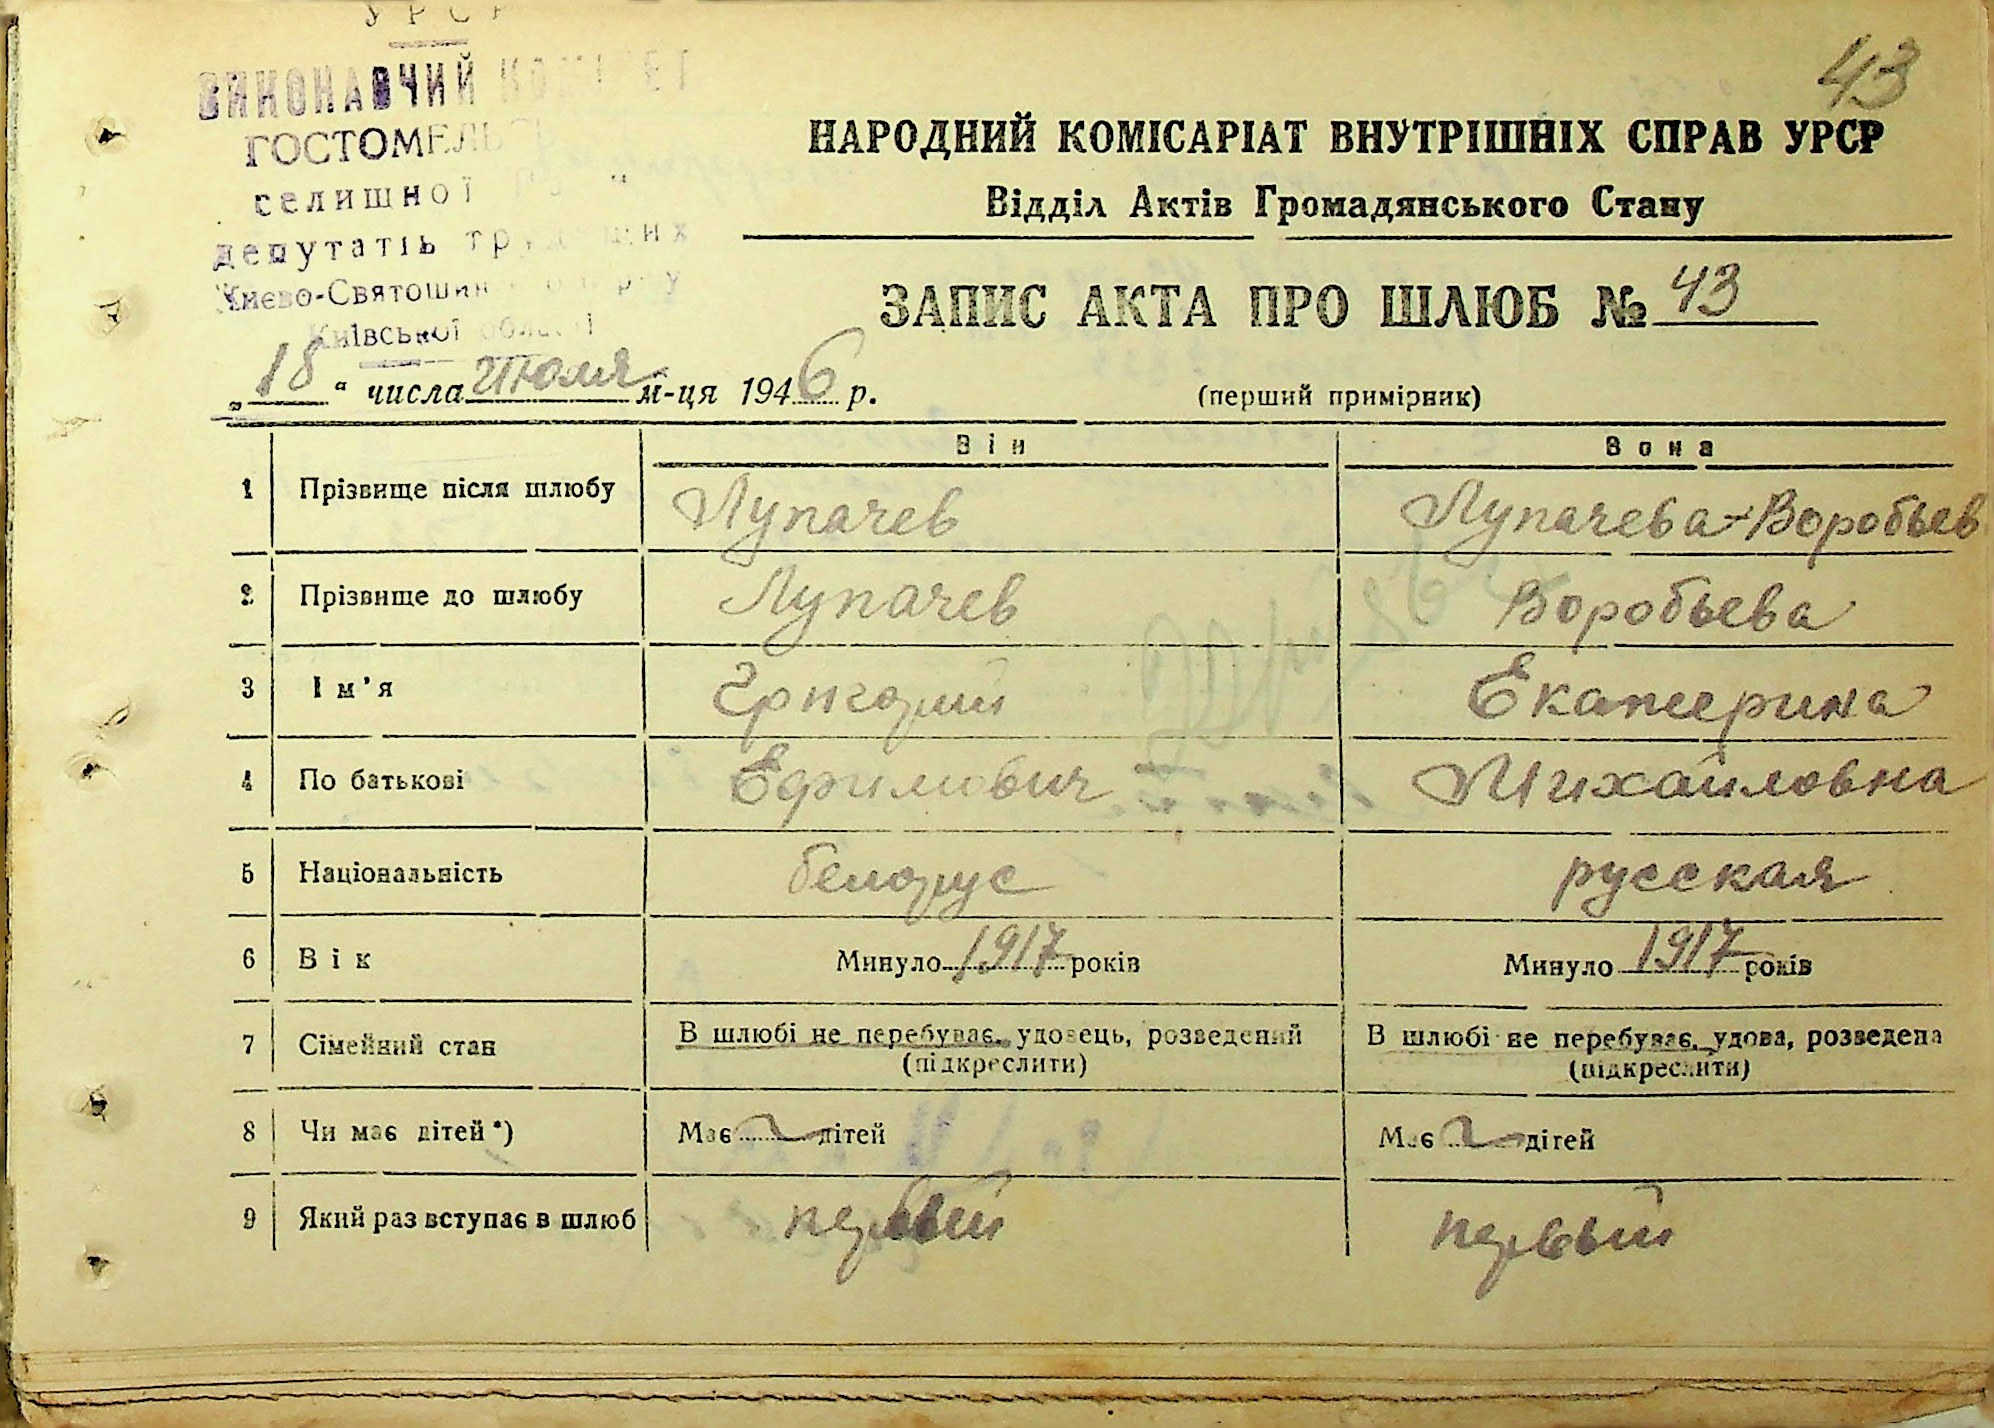 УРСР
43
ВИКОНАВЧИЙ
ГОСТОМЕЛЬ
селишної
депутатів
Києво-Святошин
Київської області
НАРОДНИЙ КОМІСАРІАТ ВНУТРІШНІХ СПРАВ УРСР
Відділ Актів Громадянського Стану
ЗАПИС АКТА ПРО ШЛЮБ № 43
„18“ числа Июля м-ця 1946 р.
(перший примірник)
Він Вона
1 Прізвище після шлюбу Лупачев Лупачева-Воробьев
2 Прізвище до шлюбу Лупачев Воробьева
3 Ім'я Григорий Екатерина
4 По батькові Ефимович Михайловна
5 Національність белорус русская
6 Вік Минуло 1917 років Минуло 1917 років
7 Сімейний стан В шлюбі не перебуває, удовець, розведений В шлюбі не перебуває, удова, розведена
(підкреслити) (підкреслити)
8 Чи має дітей*) Має дітей Має дітей
9 Який раз вступає в шлюб первый первый